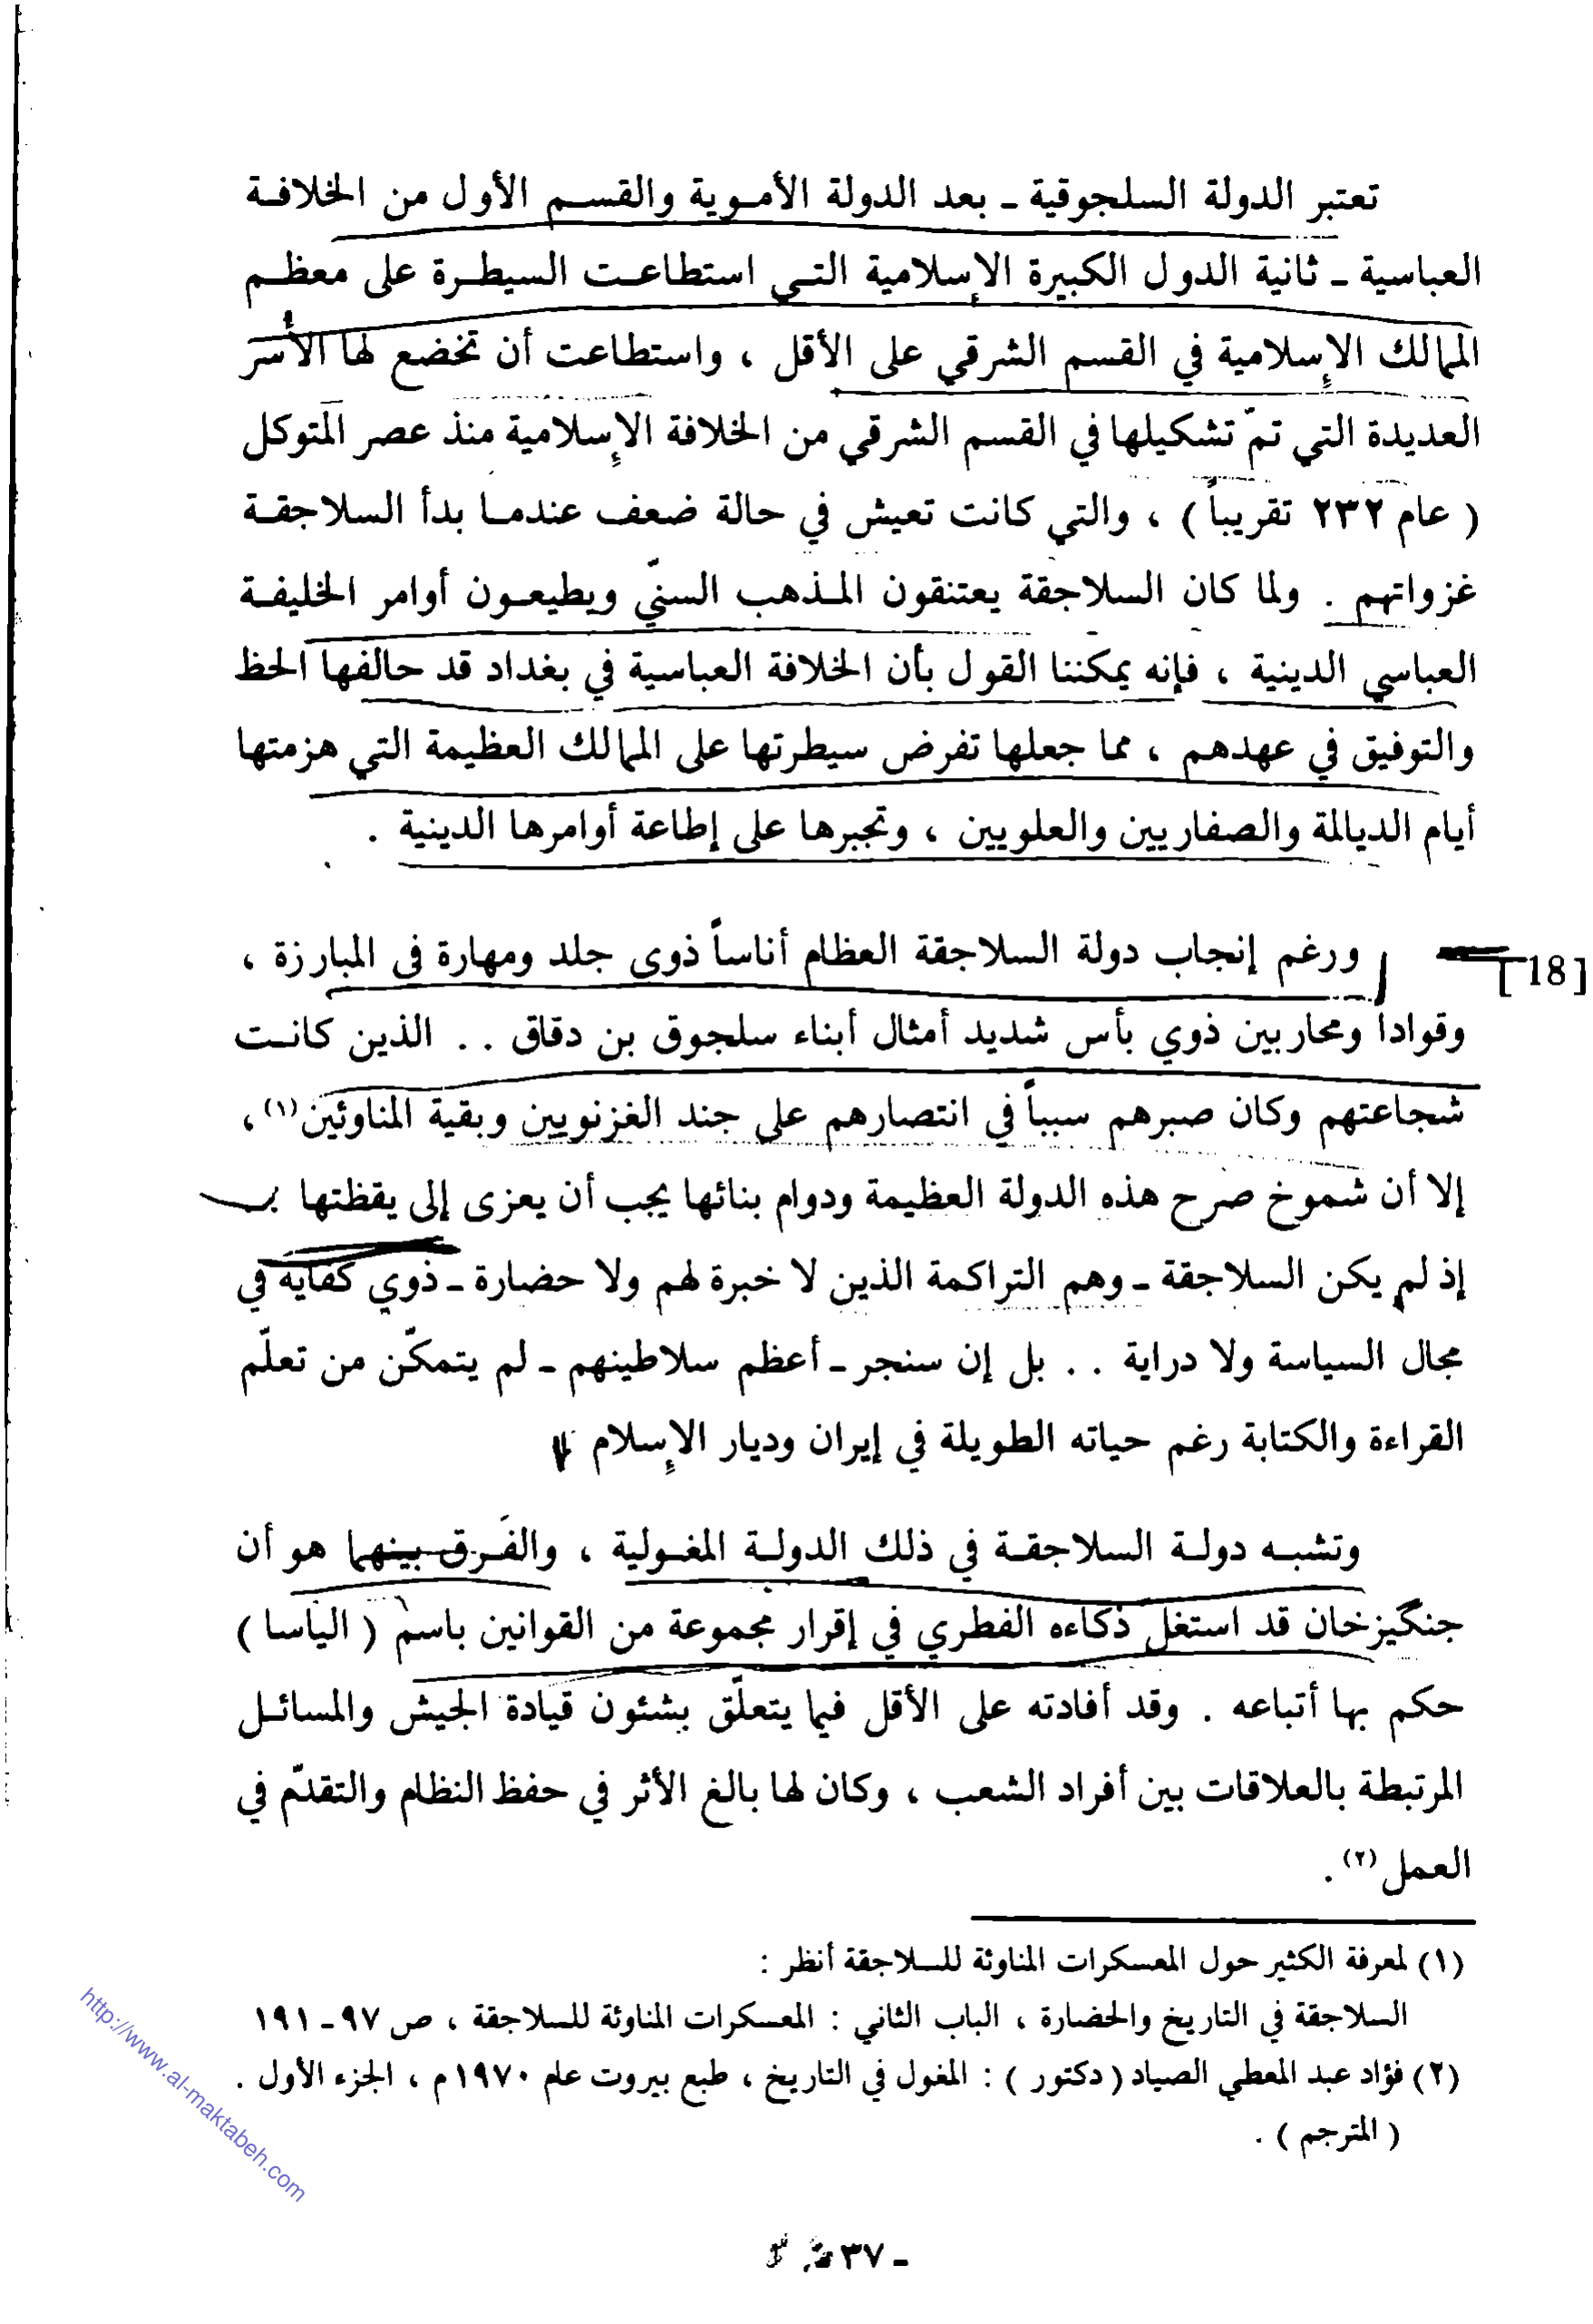 تعتبر الدولة السلجوقية ـ بعد الدولة الأموية والقسم الأول من الخلافة
العباسية ـ ثانية الدول الكبيرة الإسلامية التي استطاعت السيطرة على معظم
الممالك الإسلامية في القسم الشرقي على الأقل ، واستطاعت أن تخضع لها الأسر
العديدة التي تمّ تشكيلها في القسم الشرقي من الخلافة الإسلامية منذ عصر المتوكل
( عام ٢٣٢ تقريباً ) ، والتي كانت تعيش في حالة ضعف عندما بدأ السلاجقة
غزواتهم . ولما كان السلاجقة يعتنقون المذهب السنّي ويطيعون أوامر الخليفة
العباسي الدينية ، فإنه يمكننا القول بأن الخلافة العباسية في بغداد قد حالفها الحظ
والتوفيق في عهدهم ، مما جعلها تفرض سيطرتها على الممالك العظيمة التي هزمتها
أيام الديالمة والصفاريين والعلويين ، وتجبرها على إطاعة أوامرها الدينية .
ورغم إنجاب دولة السلاجقة العظام أناساً ذوى جلد ومهارة فى المبارزة ،
[18]
وقواداً ومحاربين ذوي بأس شديد أمثال أبناء سلجوق بن دقاق . . الذين كانت
شجاعتهم وكان صبرهم سبباً في انتصارهم على جند الغزنويين وبقية المناوئين(١) ،
إلا أن شموخ صرح هذه الدولة العظيمة ودوام بنائها يجب أن يعزى إلى يقظتها
إذ لم يكن السلاجقة ـ وهم التراكمة الذين لا خبرة لهم ولا حضارة ـ ذوي كفاية في
مجال السياسة ولا دراية . . بل إن سنجر ـ أعظم سلاطينهم ـ لم يتمكّن من تعلّم
القراءة والكتابة رغم حياته الطويلة في إيران وديار الإسلام
وتشبه دولة السلاجقة في ذلك الدولة المغولية ، والفَرق بينهما هو أن
جنگيزخان قد استغل ذكاءه الفطري في إقرار مجموعة من القوانين باسم ( الياسا )
حكم بها أتباعه . وقد أفادته على الأقل فيما يتعلّق بشئون قيادة الجيش والمسائل
المرتبطة بالعلاقات بين أفراد الشعب ، وكان لها بالغ الأثر في حفظ النظام والتقدّم في
العمل(٢) .
(١) لمعرفة الكثير حول المعسكرات المناوئة للسلاجقة أنظر :
السلاجقة في التاريخ والحضارة ، الباب الثاني : المعسكرات المناوئة للسلاجقة ، ص ٩٧ ـ ١٩١
(٢) فؤاد عبد المعطي الصياد ( دكتور ) : المغول في التاريخ ، طبع بيروت عام ١٩٧٠ م ، الجزء الأول .
( المترجم ) .
http://www.al-maktabeh.com
ـ ٣٧